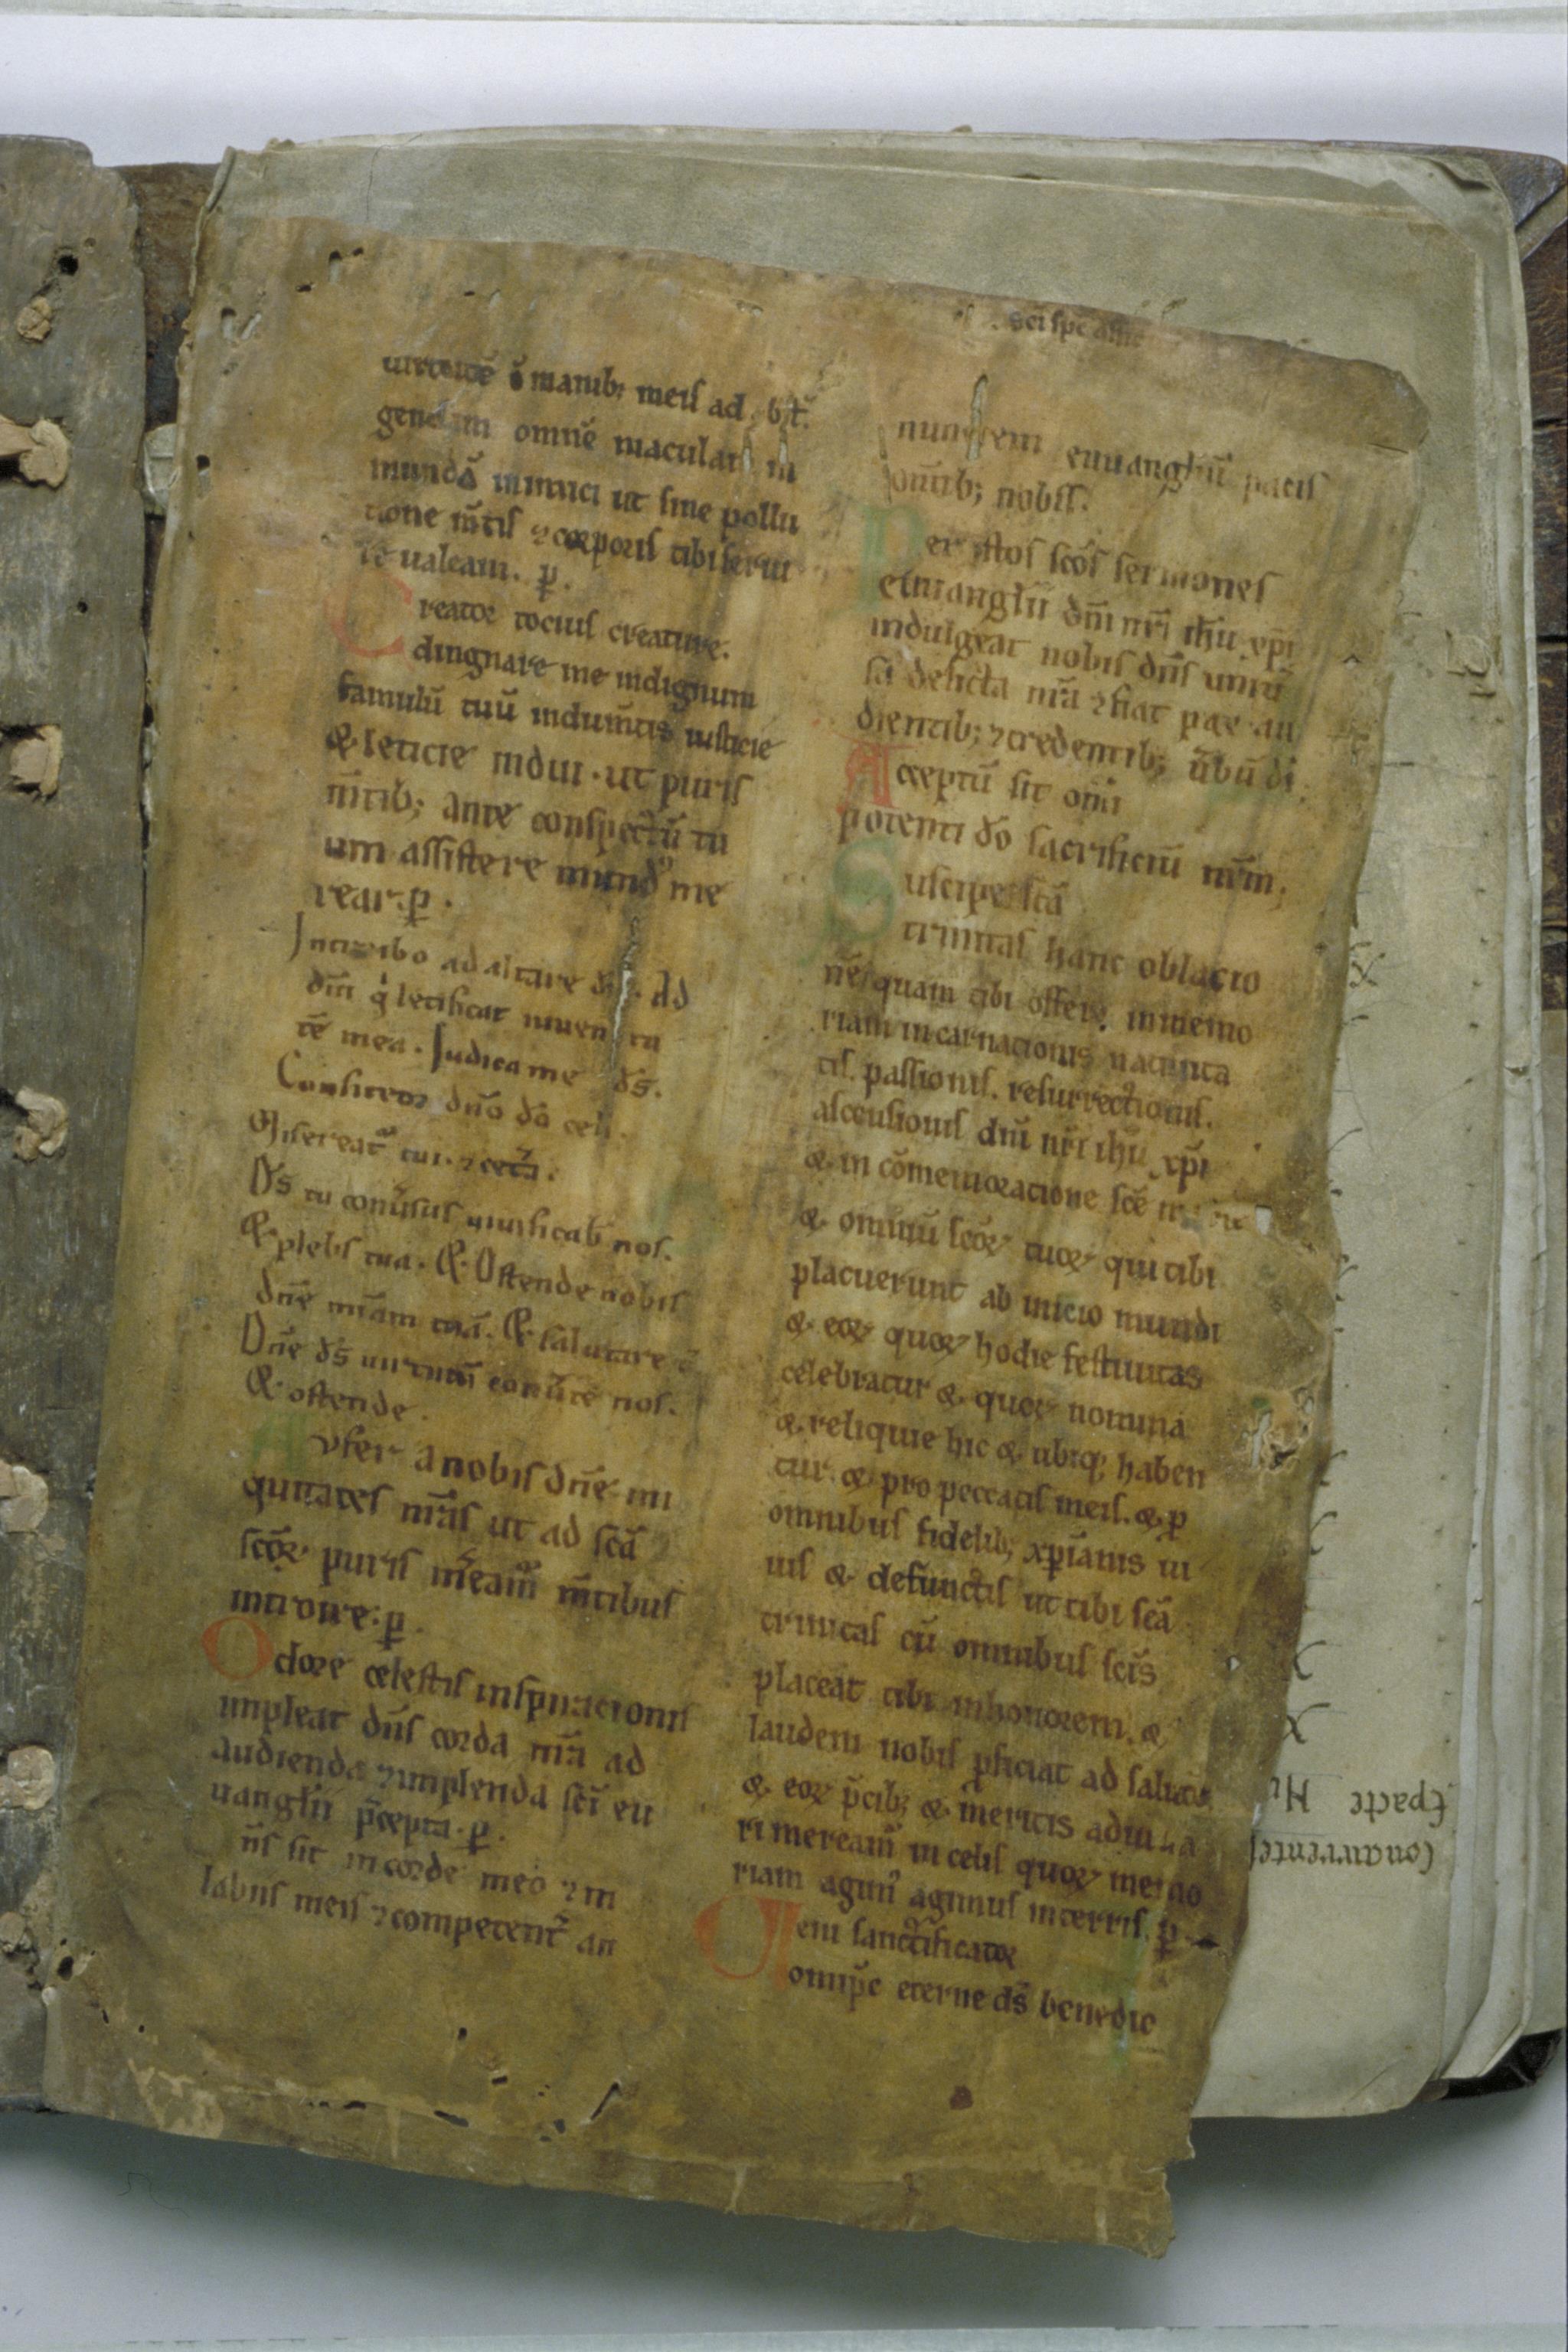 uirtutē ō manib; meis ad
gendam omnē maculam in
mundā inimici ut sine pollu
tione m̄tis ⁊ corporis tibi serui
re ualeam. p̱.
Creator tocius creature.
dingnare me indignum
famulū tuū indum̄tis iusticie
& leticie indui. ut puris
m̄tib; ante conspectū tu
um assistere mundꝰ me
rear. p̱.
Introibo ad altare di. Ad
dm̄ q̇ letificat iuuen tu
tē mea. Iudica me ds̄.
Confiteor dn̄o dō celi.
Misereat̄ tui. ⁊ cet̄a.
Ds̄ tu conu̓sus uiuificab̄ nos.
& plebs tua. & Ostende nobis
dn̄e mīam tuā. & salutare
Dn̄e ds̄ uirtutū conu̓te nos.
& ostende.
Aufer a nobis dn̄e ini
quitates nr̄as ut ad sc̄a
sc̄oꝝ puris m̓eam̄ m̄tibus
introire. p̱.
Odore celestis inspiracionis
impleat dn̄s corda nr̄a ad
audienda ⁊ implenda sc̄i eu
uangl̄ii p̄cepta. p̱.
n̄s sit in corde meo ⁊ in
labiis meis ⁊ competent̄ an
nuntiem euuangl̄iū pacis
om̄ib; nobis.
Per istos sc̄os sermones
euuangl̄ii dn̄i nr̄i ih̄u xp̄i
indulgeat nobis dn̄s uniū̓
sa delicta nr̄a ⁊ fiat pax au
dientib; ⁊ credentib; u̓bū dī.
Acceptū sit omni
potenti dō sacrificiū nr̄m.
Suscipe sc̄a
trinitas hanc oblacio
nē quam tibi offero in memo
riam incarnacionis natiuita
tis. passionis. resurrectionis.
ascensionis dn̄i nr̄i ih̄u xp̄i
& in cōmemoracione sc̄e
& omniū sc̄oꝝ tuoꝝ qui tibi
placuerunt ab inicio mundi
& eoꝝ quoꝝ hodie festiuitas
celebratur & quoꝝ nomina
& reliquie hic & ubiq; haben
tur. & pro peccatis meis. & p̱
omnibus fidelib; xp̄ianis ui
uis & defunctis ut tibi sc̄a
trinitas cū omnibus sc̄is
placeat tibi in honorem. &
laudem nobis p̱ficiat ad salutē.
& eoꝝ p̄cib; & meritis adiuua
ri meream̄ in celis quoꝝ memo
riam agim̄ agimus in terris. p̱.
Ueni sanctificator
omnip̄c eterne ds̄ benedic
Epacte
Concurrentes